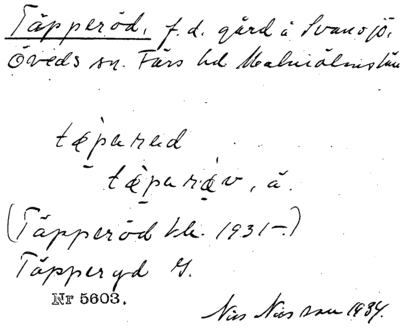 Täpperöd, f.d. gård å Svansjö,
Öveds sn. Färs hd Malmöhus län
täparad
täparöv, ä.
(Täpperöd kk. 1931-.)
Täpperyd G.
Nr 5603.
Nils Nilsson 1934.